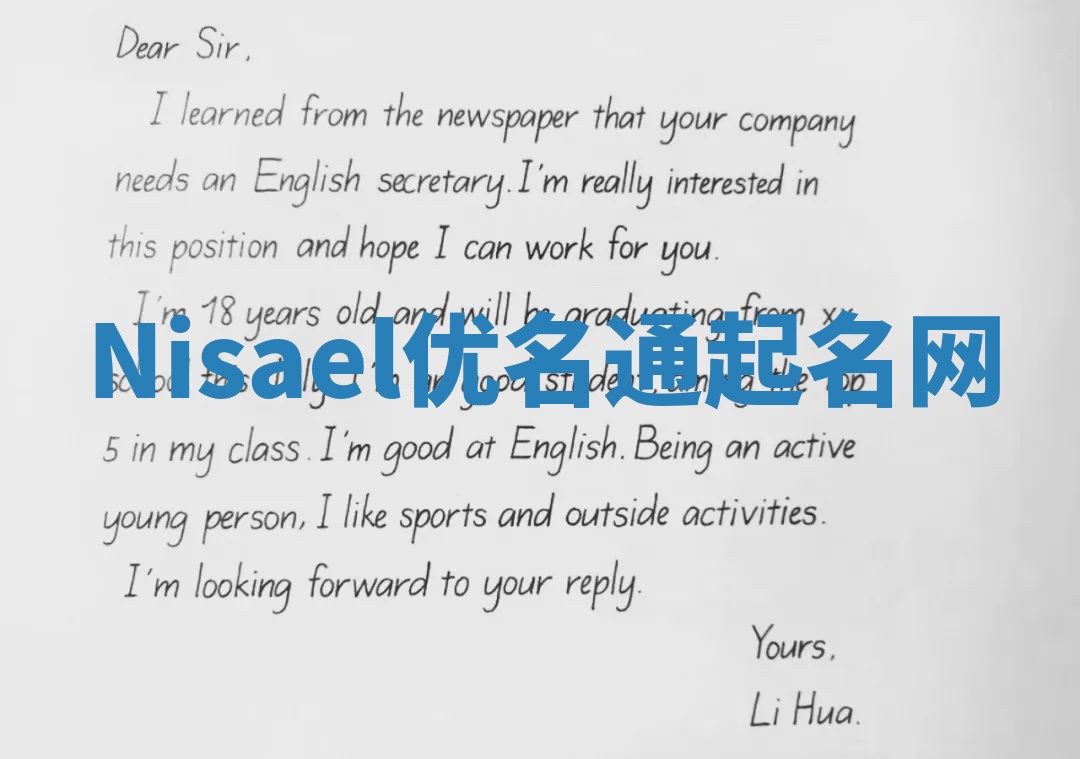 Dear Sir,
I learned from the newspaper that your company
needs an English secretary. I'm really interested in
this position and hope I can work for you.
I'm 18 years old and will be graduating from xx
Nisael优名通起名网
school this July. I'm a good student, among the top
5 in my class. I'm good at English. Being an active
young person, I like sports and outside activities.
I'm looking forward to your reply.
Yours,
Li Hua.